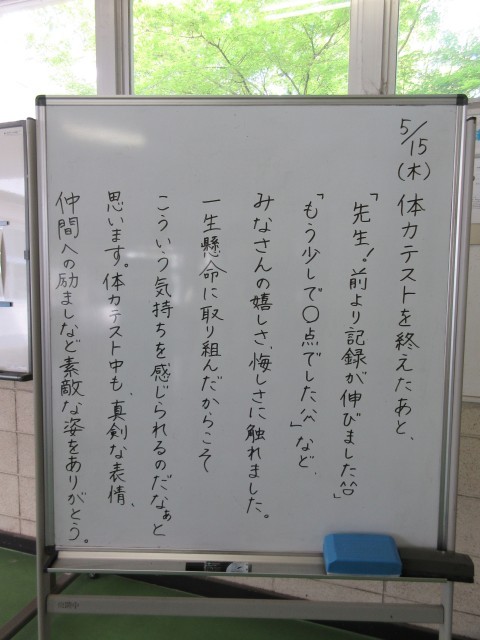 5/15(木) 体力テストを終えたあと、
「先生!前より記録が伸びました^o^」
「もう少しで○点でした^^」など、
みなさんの嬉しさ、悔しさに触れました。
一生懸命に取り組んだからこそ
こういう気持ちを感じられるのだなぁと
思います。体力テスト中も、真剣な表情、
仲間への励ましなど素敵な姿をありがとう。